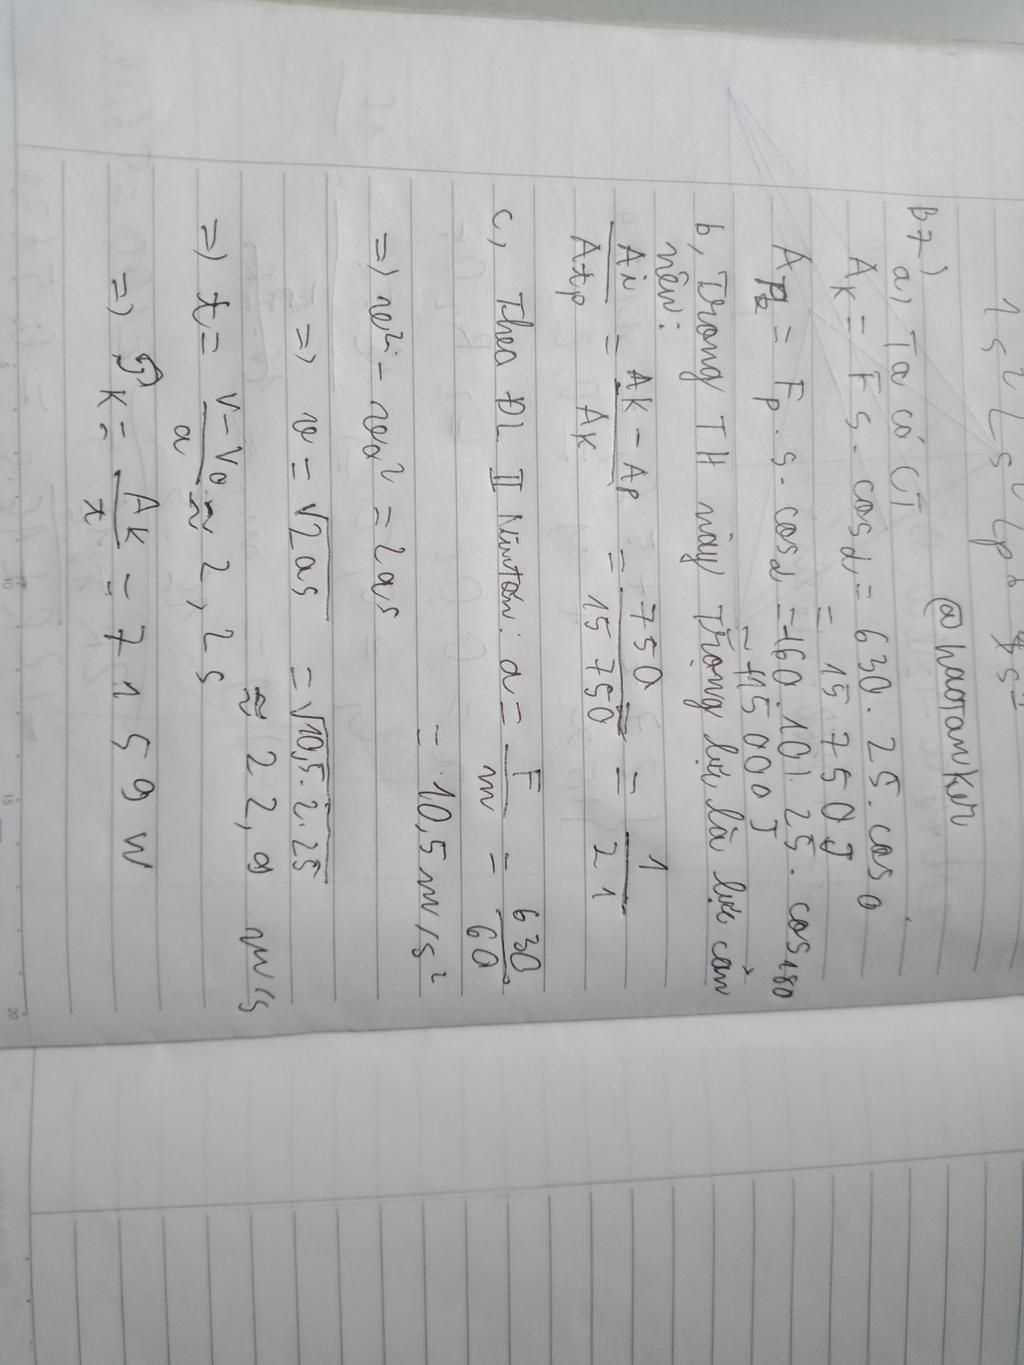 @haotanker
B7)
a, Ta có CT
A_K = F s . cosα = 630. 25. cos 0
= 15 750 J
A_P = F_p . s . cosα = 60. 10. 25. cos 180
= -15 000 J
b, Trong TH này Trọng lực là lực cản
nên:
Ai / Atp = A_K - A_P / A_K = 750 / 15 750 = 1 / 21
c, Theo ĐL II Niutơn: a = F / m = 630 / 60
= 10,5 m/s²
=> v² - v₀² = 2as
=> v = √2as = √10,5.2.25
≈ 22,9 m/s
=> t = v - v₀ / a ≈ 2,2 s
=> 𝒫_K = A_K / t = 7159 W